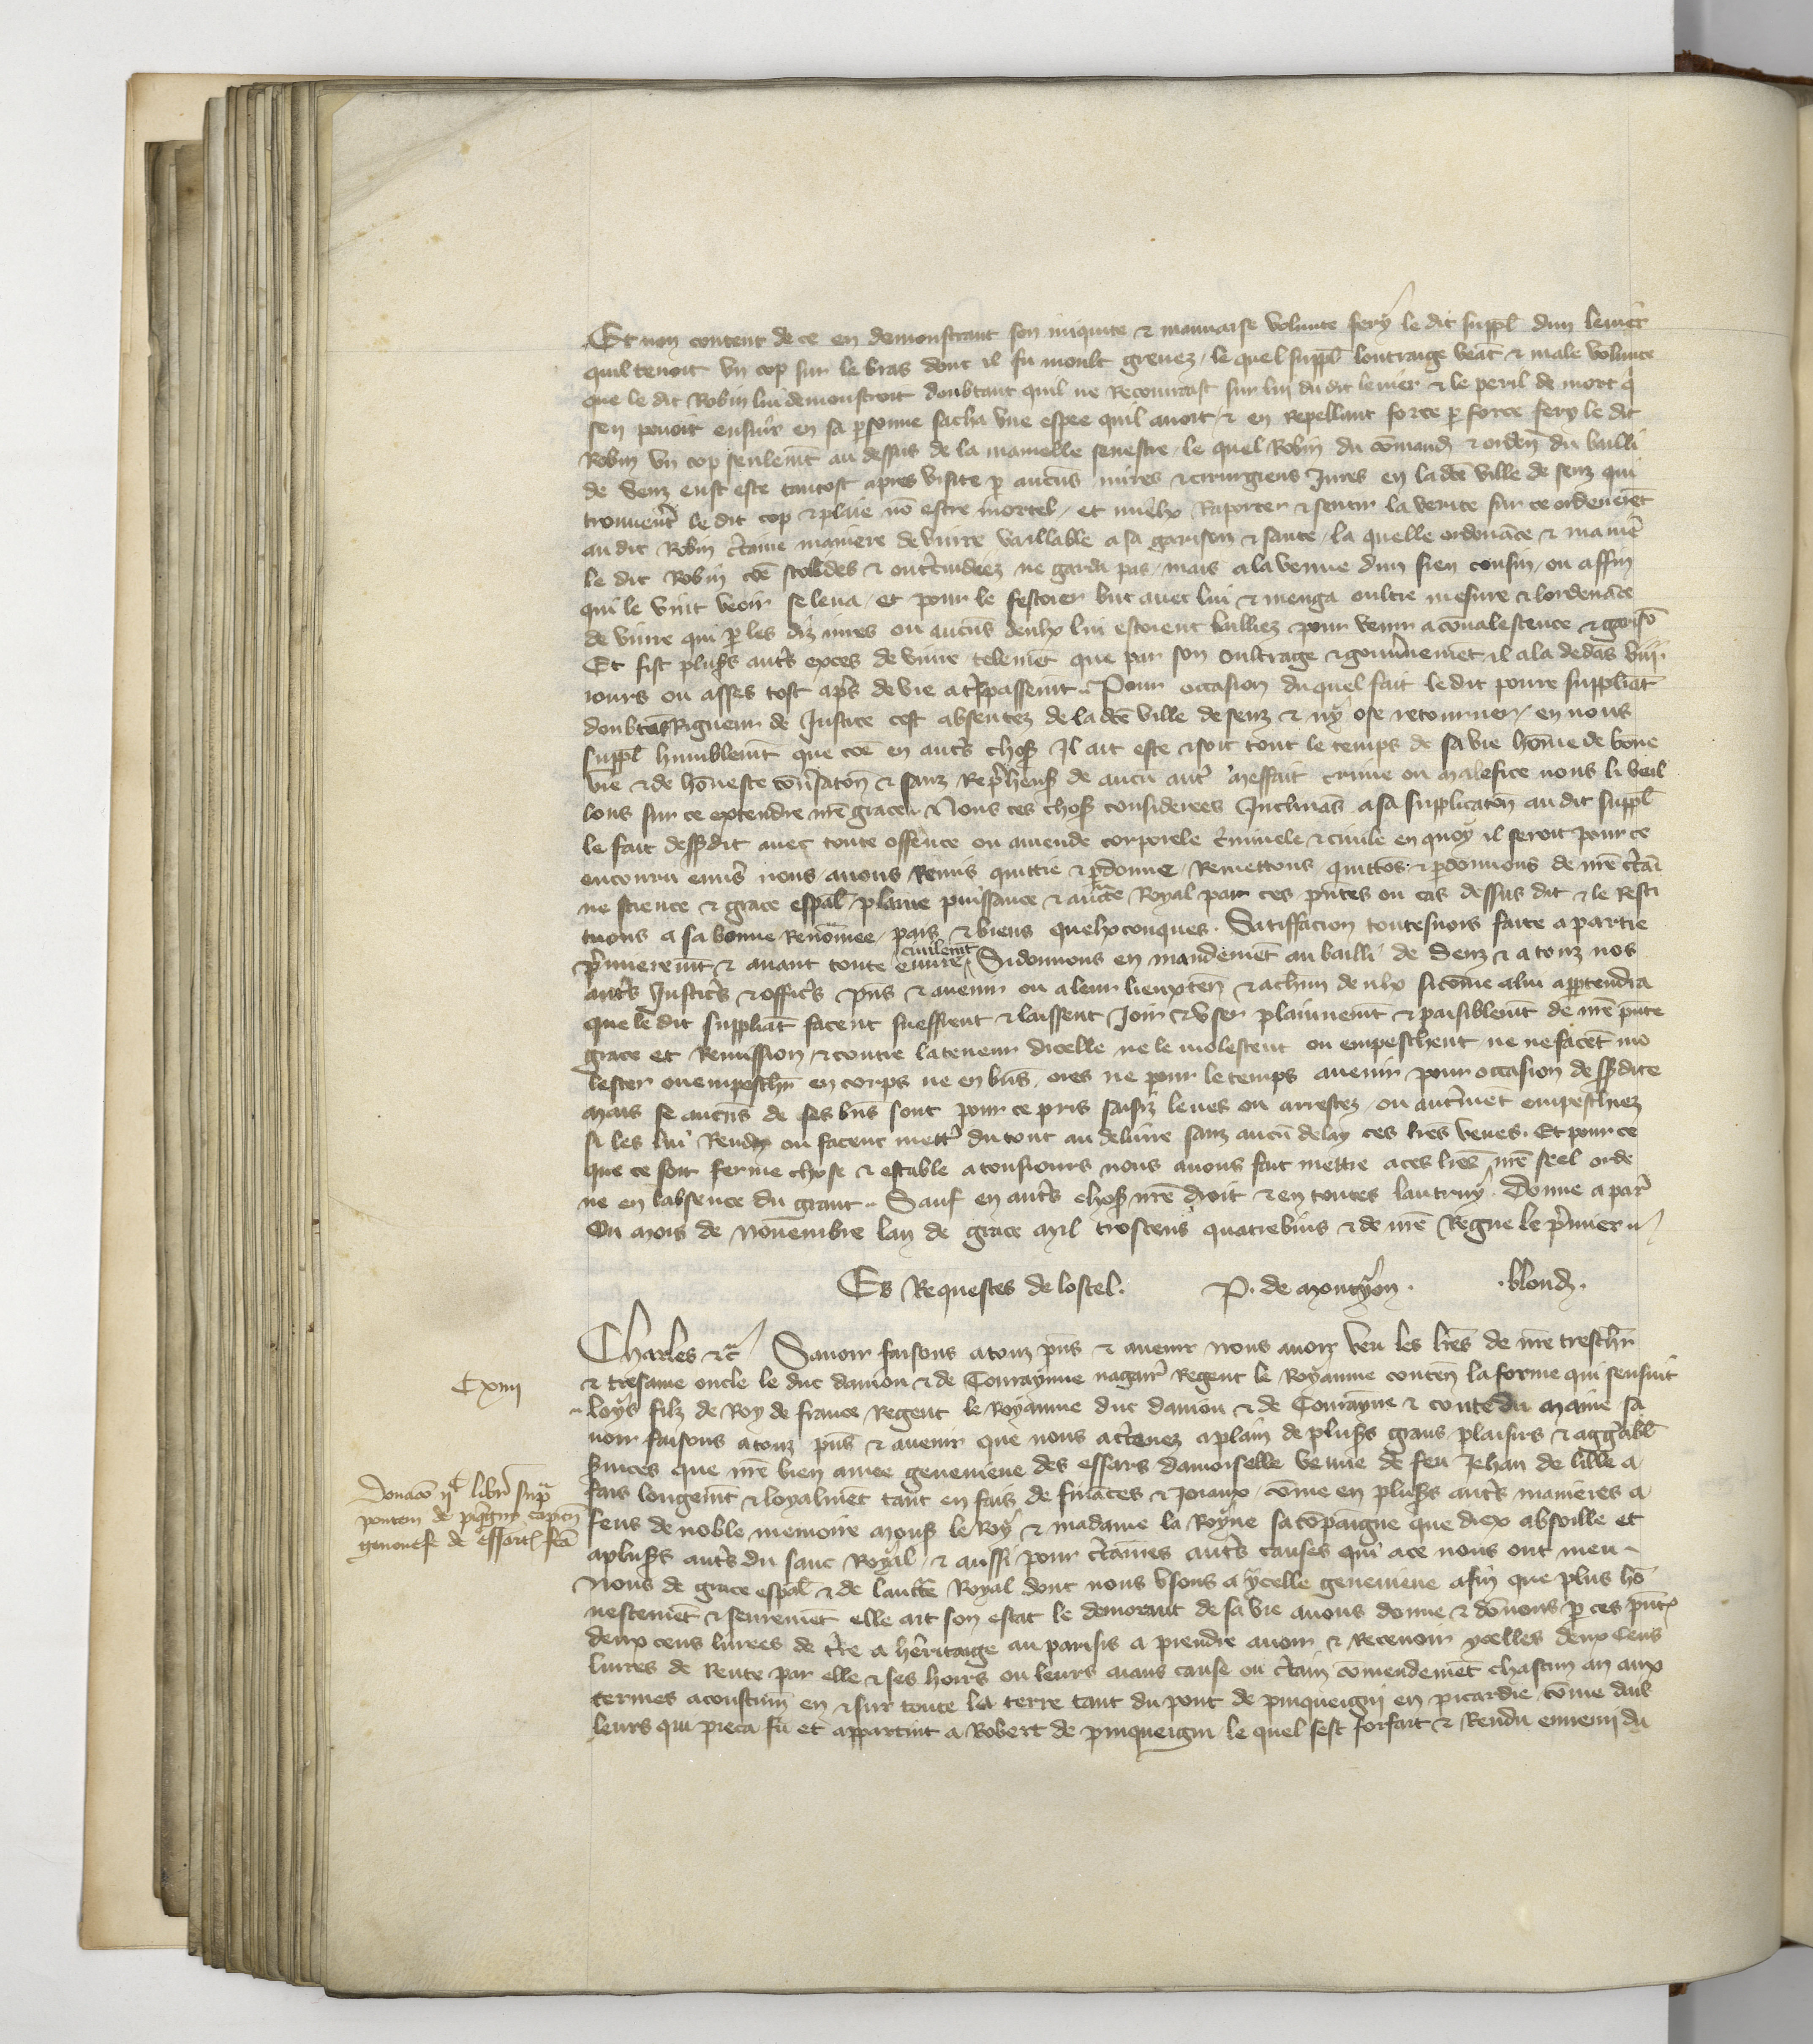 Et non content de ce en demonstrant son iniquite & mauuaise volunte fery le dit suppl dun leuier
quil tenoit vn cop sur le bras dont il fu moult greuez / le quel suppl loutraige veāt & male volunte
que le dit Robin lui demonstroit doubtant quil ne Recouurast sur lui du dit leuier & le peril de mort q̄
sen pouoit ensuir en sa psonne sacha vne espee quil auoit / & en repellant force p force fery le dit
Robin vn cop seulemt au dessus de la mamelle senestre / le quel Robin du cōmand & orden du bailli
de Senz eust este tantost apres visite p aucūs mires & cirurgiens Jures en lad̄ce ville de senz qui
trouuert le dit cop & plaie nō estre mortel / et mielx Raporter & sentir la verite sur ce ordenerēt
au dit Robin ctaine maniere de viure vaillable a sa garison & sante / la quelle ordonāce & manie
le dit Robin cōe stolides & outcuidiez ne garda pas / mais a la venue dun sien cousin / ou affin
qui le vint veoir se leua / et pour le festoier but auec lui & menga oultre mesure & lordenāce
de viure qui p les diz mires ou aucūs deulx lui estoient bailliez pour venir a cōualescence & garisō
Et fist plus's aut's exces de viure telemēt que par son oultrage & gouunemēt il ala dedās viij
iours ou asses tost ap's de vie a tspassemt .. Pour occasion du quel fait le dit poure suppliāt
doubtās Rigueur de Justice cest absentez de lad̄ce ville de senz & ny ose retourner / en nous
suppl humblemt que cōe en aut's chos Il ait este & soit tout le temps de sa vie hōme de bōne
vie & de hōneste cōusatōn & sanz Rep'hens de aucū aut' meffait crime ou malefice nous li veil
lons sur ce extendre nr̄e grace .. Nous ces chos considerees Inclinās a sa supplicatōn au dit suppl
le fait dessdit auec toute offence ou amende corporele c'minele & ciuile en quoy il seroit pour ce
encouru enu's nous / auons Remis quittie & pdonne / Remettons quittōs & pdonnons de nr̄e ctai
ne science & grace espāl / plaine puissance & auctē Royal par ces pn̄tes ou cas dessus dit & le Resti
tuons a sa bonne Renōmee / pais & biens quelxconques . Satiffacion toutesuois faite a partie
p'mieremt & auant toute euure ciuilemt Si donnons en mandemēt au bailli de Senz & a touz nos
aut's Justic's & offic's pn̄s & auenir ou a leur lieuxten & a chūn deulx si cōme a lui apptendra
que le dit suppliāt facent sueffrent & laissent Joir & vser plainnemt & paisiblemt de nr̄e pn̄te
grace et Remission / & contre la teneur dicelle ne le molestent ou empeschent ne ne facēt mo
lester ou empescher en corps ne en bn̄s ores ne pour le temps auenir pour occasion dessdite
Mais se aucūs de ses bn̄s sont pour ce pris saisiz leues ou arrestez / ou aut'mēt empeschiez
si les lui Rendēt ou facent mett' du tout au deliure sanz aucū delay ces lrēs veues . Et pour ce
que ce soit ferme chose & estable a tousiours nous auons fait mettre a ces lrēs nr̄e seel orde
ne en labsence du grant .. Sauf en aut's chos nr̄e droit & en toutes lautruy . Donne a par'
Ou mois de Nouembre lan de grace Mil troscens quatrevins & de nr̄e Regne le p'mier ..
Es Requestes de lostel . P . de Montyon . . blond .
Charles &c Sauoir faisons a touz pn̄s & auenir nous auoir veu les lrēs de nr̄e treschr
& tresame oncle le duc daniou & de Tourayine nagair' Regent le Royaume conten la forme qui sensuit
Cxiiij
.. Loys filz de Roy de france Regent le Royaume duc daniou & de Tourayne & conte du Maine sa
uoir faisons a touz pn̄s & auenir que nous actenez a plain de plus's grans plaisirs & aggabl
suices que nr̄e bien amee geneuieue des essars damoiselle veuue de feu Jehan de lille a
fais longemt & loyalmēt tant en fais de finances & Joiaux / cōme en plus's aut's manieres a
Donaco ijC libr sup
pontem de piqgny capien
genouefe de essart' fcā
feus de noble memoire mons le Roy & madame la Royne sa cōpaigne que diex absoille et
a plus's aut's du sanc Royal / & aussi pour c'taines aut's causes qui a ce nous ont meu ..
Nous de grace espāl & de lauctē Royal dont nous vsons a ycelle geneuieue afin que plus hō
nestemēt & seuremēt elle ait son estat le demorant de sa vie auons donne & dōnons p ces pn̄t'
deux cens liurees de t're a heritaige au parisis a prendre auoir & Receuoir ycelles deux Cens
liures de Rente par elle & ses hoirs ou leurs aians cause ou c'tain cōmendemēt chascun an aux
termes acoustum en & sur toute la terre tant du pont de pinqueigni en picardie / cōme dail
leurs qui pieca fu et appartint a Robert de pinqueigni / le quel sest forfait & Rendu ennemi du